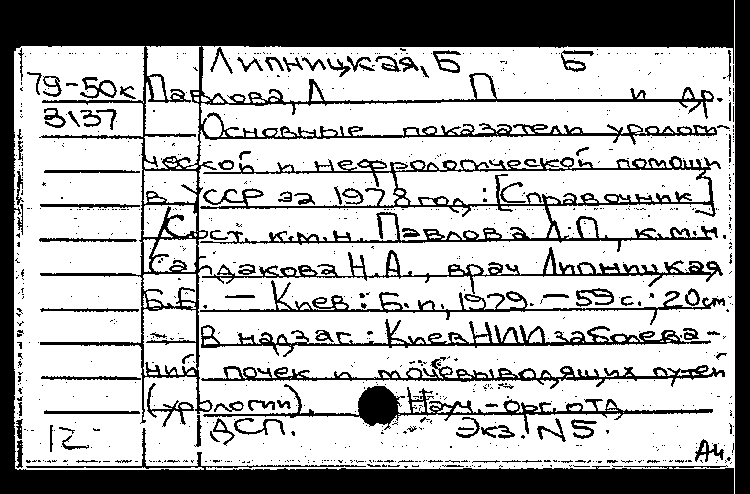 Липницкая, Б Б
79-50к Павлова, Л П и др.
3137 Основные показатели урологи-
ческой и нефрологической помощи
в УССР за 1978 год : [Справочник]
/Сост. к.м.н. Павлова Л.П., к.м.н.
Сайдакова Н.А., врач Липницкая
Б.Б. — Киев : Б. и, 1979. — 59 с.; 20 см.
В надзаг. : Киев НИИ заболева-
ний почек и мочевыводящих путей
(урологии). Науч.-орг. отд
12 ДСП. Экз. N5.
Ач.